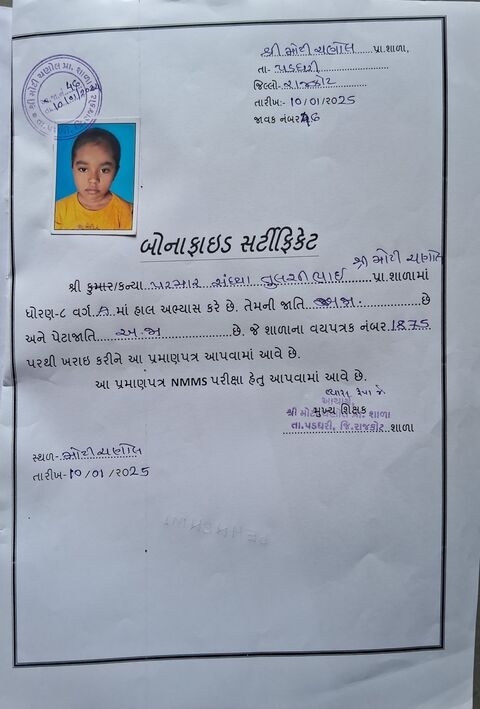 શ્રી મોટી ચણોલ પ્રા.શાળા,
તા- પડધરી
જિલ્લો- રાજકોટ
તારીખ:- 10/01/2025
જાવક નંબર 46
શ્રી મોટી ચણોલ પ્રા. શાળા
જા.નં. 46
10/01/2025
બોનાફાઇડ સર્ટીફિકેટ
શ્રી કુમાર/કન્યા પરમાર સંધ્યા તુલશીભાઈ શ્રી મોટી ચણોલ પ્રા.શાળામાં
ધોરણ-૮ વર્ગ A માં હાલ અભ્યાસ કરે છે. તેમની જાતિ અજા છે
અને પેટાજાતિ અ.જા છે. જે શાળાના વયપત્રક નંબર 1875
પરથી ખરાઇ કરીને આ પ્રમાણપત્ર આપવામાં આવે છે.
આ પ્રમાણપત્ર NMMS પરીક્ષા હેતુ આપવામાં આવે છે.
આચાર્ય
મુખ્ય શિક્ષક
શ્રી મોટી ચણોલ પ્રા. શાળા
તા.પડધરી, જિ.રાજકોટ શાળા
સ્થળ- મોટી ચણોલ
તારીખ- 10/01/2025